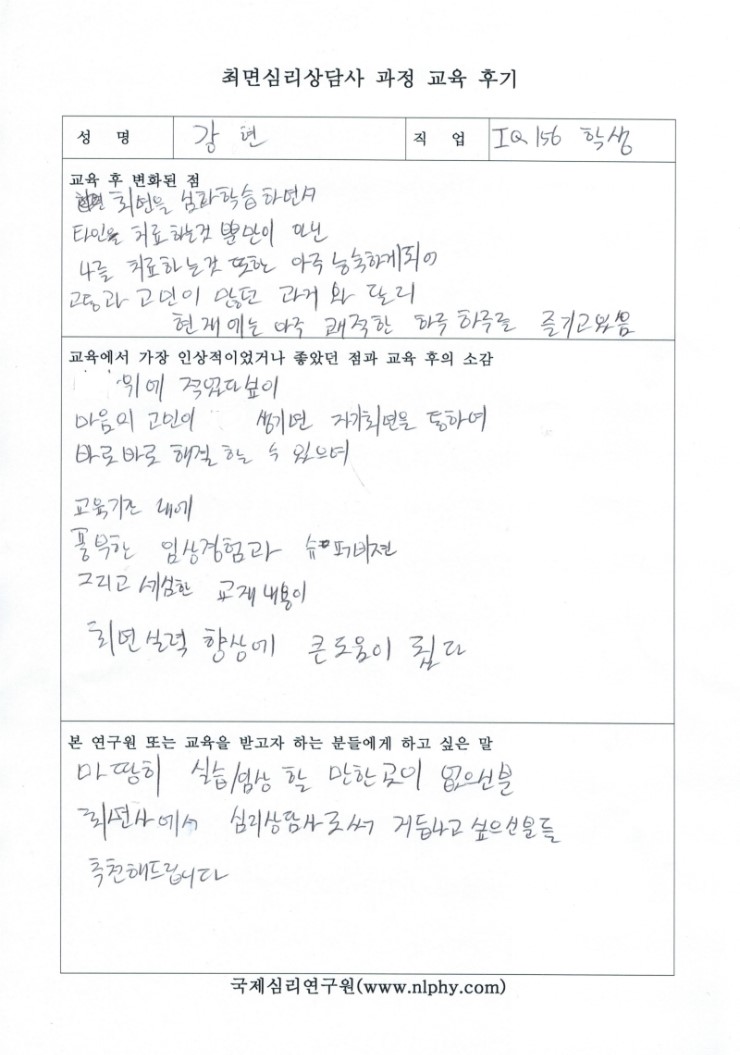 최면심리상담사 과정 교육 후기
성 명 강 현 직 업 IQ 156 학생
교육 후 변화된 점
최면을 심화학습 하면서
타인을 치료하는것 뿐만이 아닌
나를 치료하는것 또한 아주 능숙하게되어
고통과 고민이 많던 과거 와 달리
현재에는 아주 쾌적한 하루 하루를 즐기고 있음
교육에서 가장 인상적이었거나 좋았던 점과 교육 후의 소감
위에 적었다싶이
마음의 고민이 생기면 자기최면을 통하여
바로바로 해결 하는 수 있으며
교육기간 내에
풍부한 임상경험과 슈퍼비젼
그리고 세심한 교재 내용이
최면실력 향상에 큰도움이 됬다
본 연구원 또는 교육을 받고자 하는 분들에게 하고 싶은 말
마땅히 실습/임상 할 만한 곳이 없으신분
최면사에서 심리상담사로써 거듭나고 싶으신분들
추천해드립니다
국제심리연구원(www.nlphy.com)